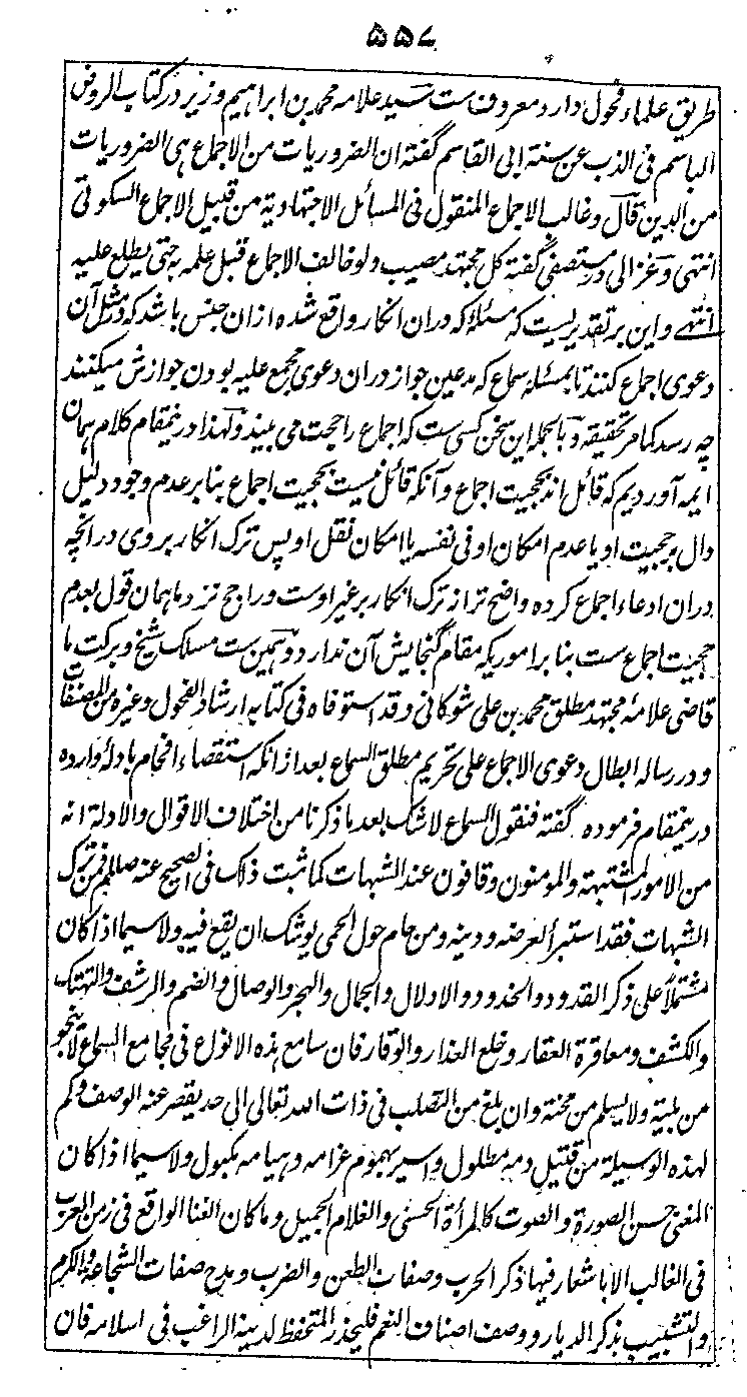 ۵۵۷
طریق علماء فحول دارد معروف ست سید علامه محمد بن ابراهیم وزیر در کتاب الروض
الباسم فی الذب عن سنة ابی القاسم گفته ان الضروریات من الاجماع هی الضروریات
من الدین قال و غالب الاجماع المنقول فی المسائل الاجتهادیة من قبیل الاجماع السکوتی
انتهی و غزالی در مستصفی گفته کل مجتهد مصیب ولو خالف الاجماع قبل علمه به حتی یطلع علیه
انتهے و این بر تقدیریست که مسئلۀ که دران انکار واقع شده ازان جنس باشد که در مثل آن
دعوی اجماع کنند تا بمسئله سماع که مدعین جواز دران دعوی مجمع علیه بودن جوازش میکنند
چه رسد کما مر تحقیقه و بالجمله این سخن کسی ست که اجماع را حجت می بیند و لهذا درینمقام کلام همان
ایمه آوردیم که قائل اند بحجیت اجماع و آنکه قائل نیست بحجیت اجماع بنابر عدم وجود دلیل
دال بر حجیت او یا عدم امکان او فی نفسه یا امکان نقل او پس ترک انکار بروی درآنچه
دران ادعاء اجماع کرده واضح تر از ترک انکار بر غیر اوست و راجح نزد ما همان قول بعدم
حجیت اجماع ست بنابر اموریکه مقام گنجایش آن ندارد و همین ست مسلک شیخ و برکت ما
قاضی علامه مجتهد مطلق محمد بن علی شوکانی و قد استوفاه فی کتابه ارشاد الفحول و غیره من المصنفات
و در رساله ابطال دعوی الاجماع علی تحریم مطلق السماع بعد ازانکه استقصاء افحام بادلۀ وارده
درینمقام فرموده گفته فنقول السماع لا شک بعد ما ذکرنا من اختلاف الاقوال والادلة انه
من الامور المشتبهة والمومنون وقافون عند الشبهات کما ثبت ذلک فی الصحیح عنه صللم فمن ترک
الشبهات فقد استبرأ لعرضه و دینه و من حام حول الحمی یوشک ان یقع فیه ولا سیما اذا کان
مشتملاً علی ذکر القدود والخدود والادلال والجمال والهجر والوصال والضم والرشف والتهتک
والکشف و معاقرة العقار و خلع العذار والوقار فان سامع هذه الانواع فی مجامع السماع لا ینجو
من بلیة ولا یسلم من محنة وان بلغ من التصلب فی ذات الله تعالی الی حد یقصر عنه الوصف و کم
لهذه الوسیلة من قتیل دمه مطلول و اسیر بهموم غرامه و هیامه مکبول ولا سیما اذا کان
المغنی حسن الصورة والصوت کالمرأة الحسنی والغلام الجمیل و ما کان الغنا الواقع فی زمن العرب
فی الغالب الا باشعار فیها ذکر الحرب و صفات الطعن والضرب و مدح صفات الشجاعة والکرم
والتشبیب بذکر الدیار و وصف اصناف النعم فلیحذر المتحفظ لدینه الراغب فی اسلامه فان